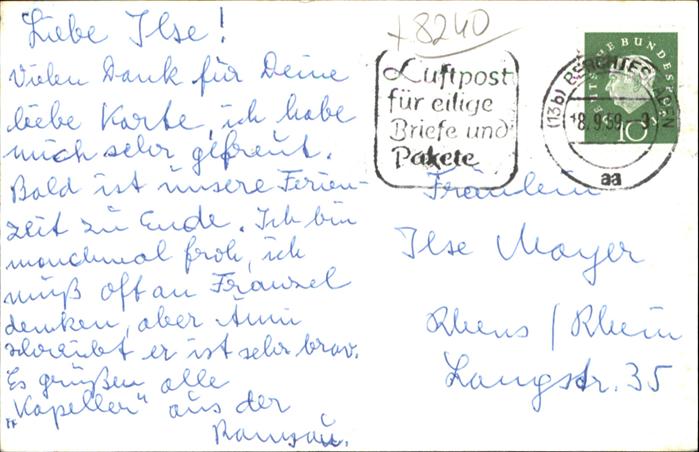 Liebe Ilse!
Vielen Dank für Deine
liebe Karte, ich habe
mich sehr gefreut.
Bald ist unsere Ferien-
zeit zu Ende. Ich bin
manchmal froh, ich
muß oft an Franzel
denken, aber Anni
schreibt er ist sehr brav.
Es grüßen alle
"Kapeller" aus der
Ramsau.
+8240
Luftpost
für eilige
Briefe und
Pakete
(13b) BERCHTESGADEN
18.9.59
aa
DEUTSCHE BUNDESPOST
10
Fräulein
Ilse Mayer
Rhens / Rhein
Langstr. 35